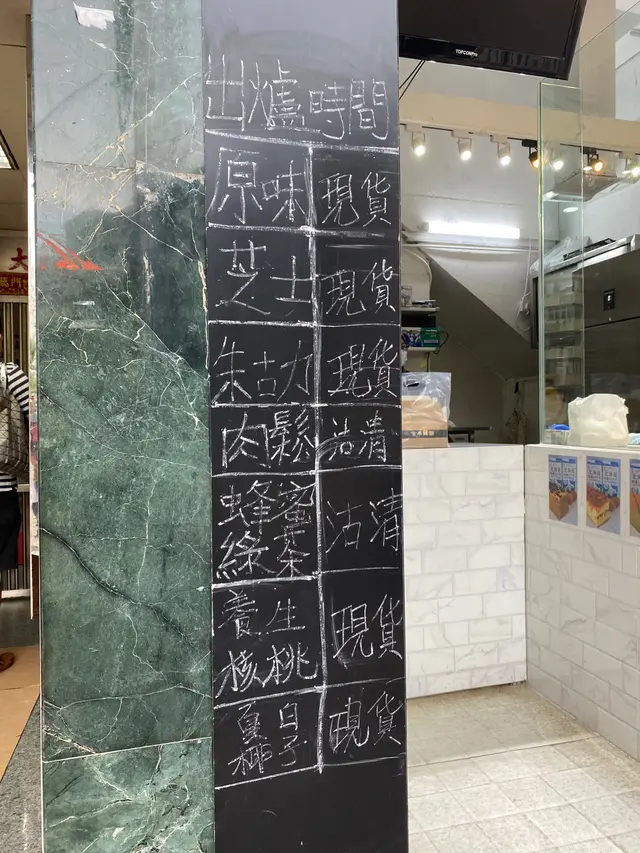 TOPCON
出爐時間
原味 現貨
芝士 現貨
朱古力 現貨
肉鬆 沽清
蜂蜜 沽清
綠茶
養生 現貨
核桃
夏日 現貨
椰子
大